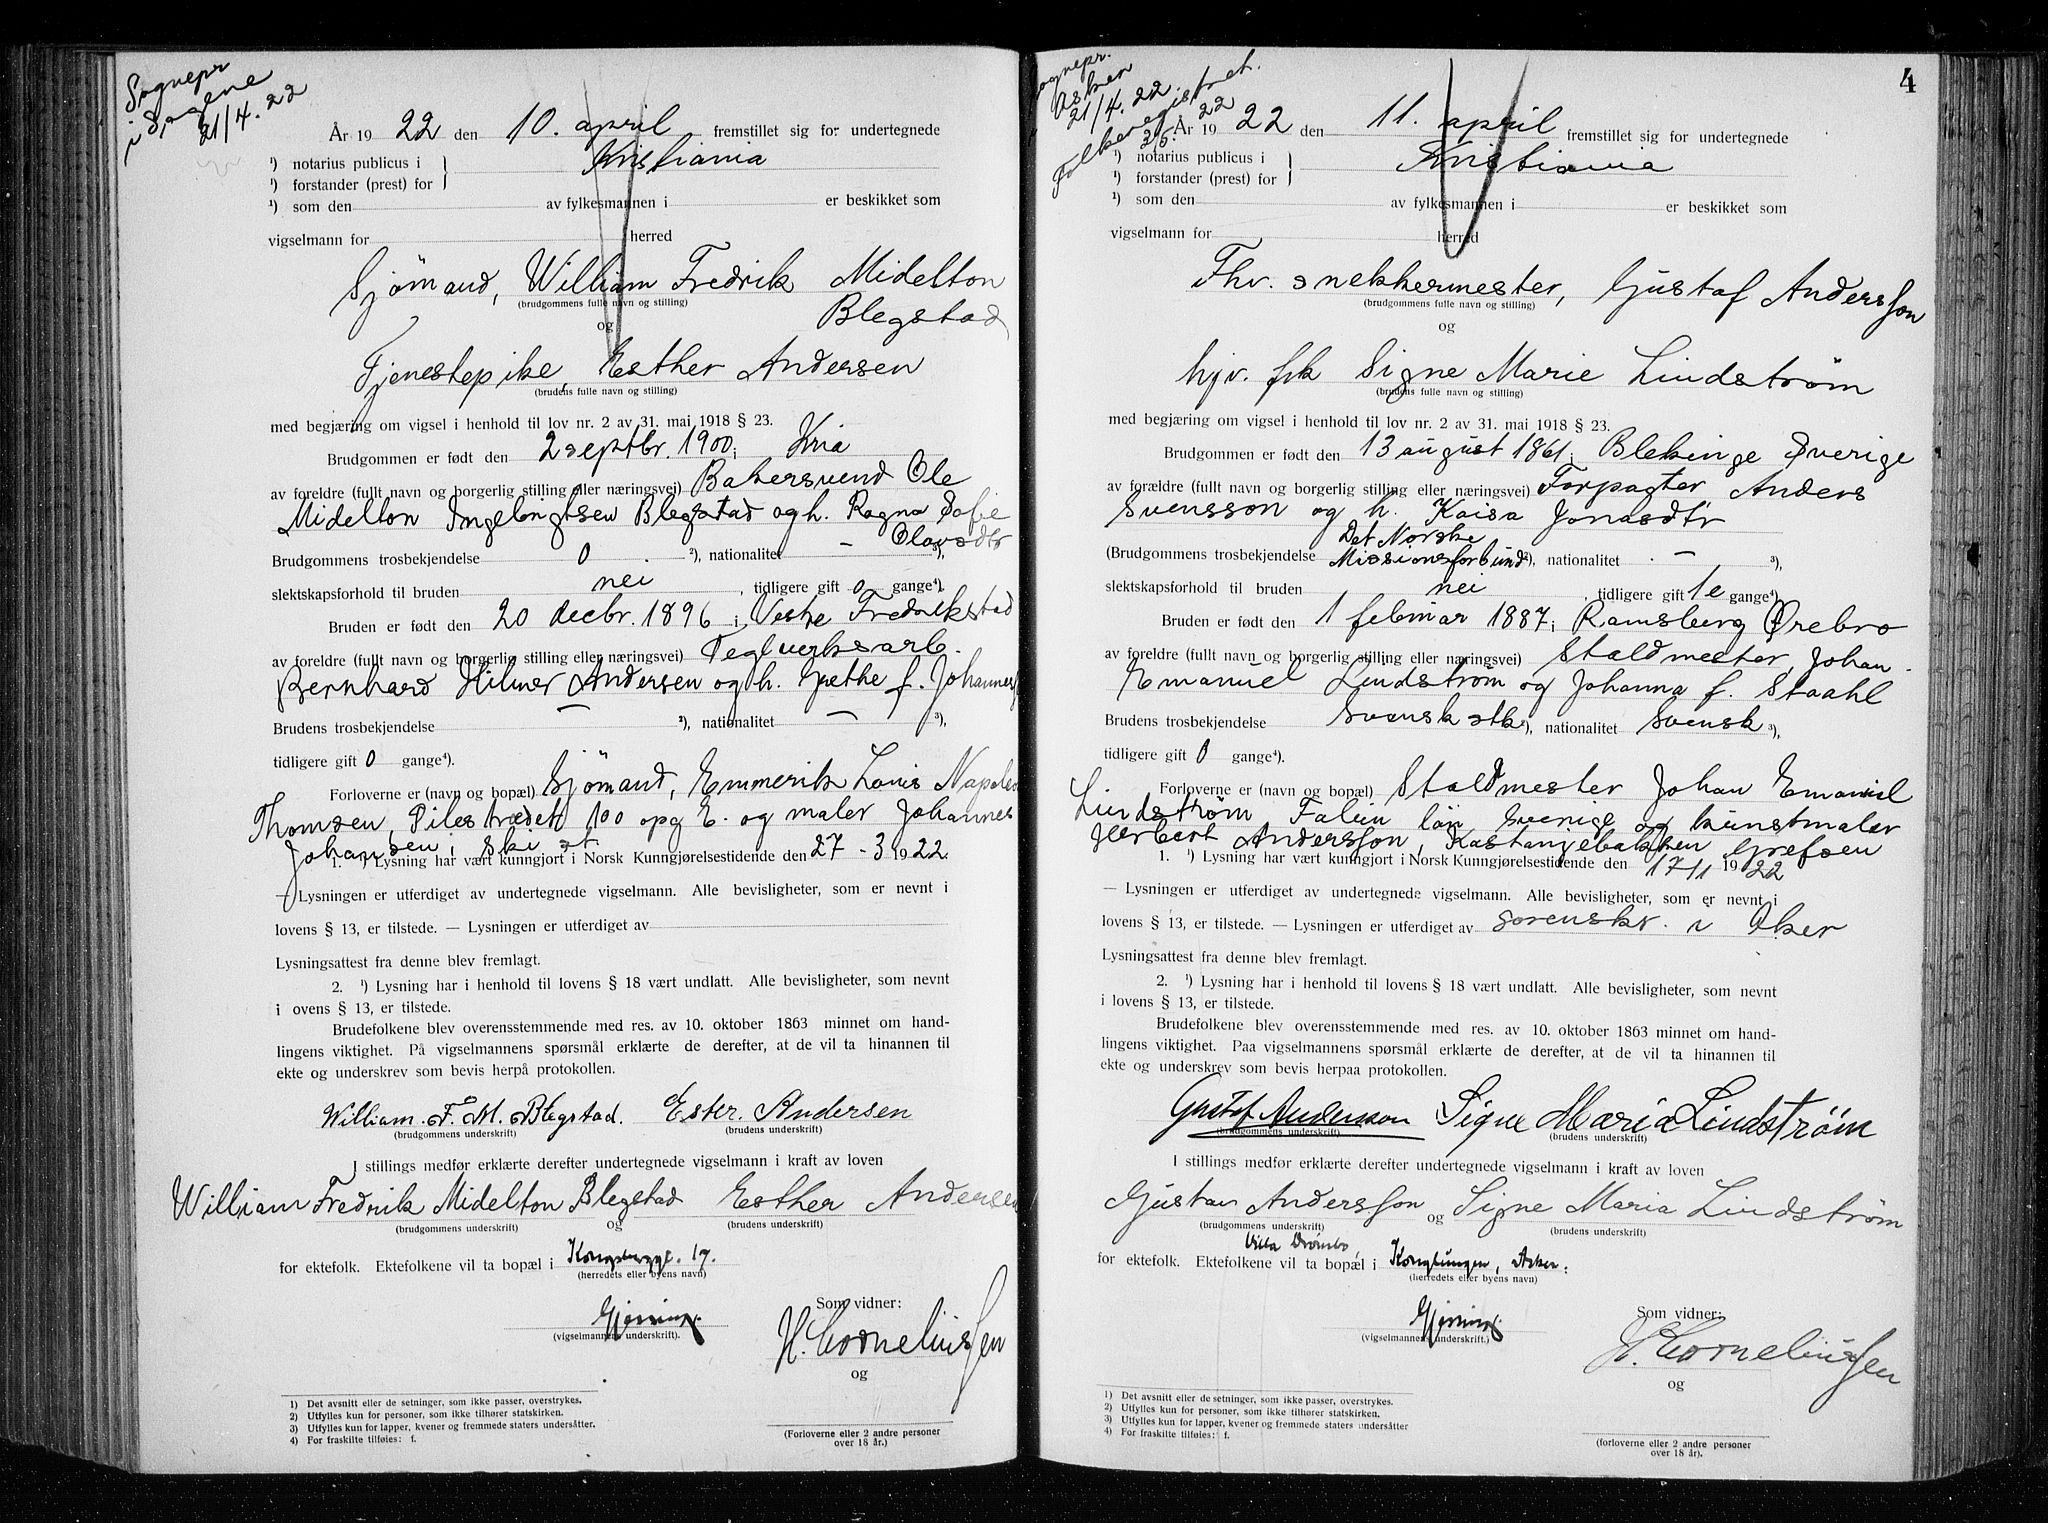 Sognepr
i Sagene
21/4. 22
År 1922 den 10. april fremstillet sig for undertegnede
¹) notarius publicus i
¹) forstander (prest) for
Kristiania
¹) som den av fylkesmannen i er beskikket som
vigselmann for herred
Sjømand, William Fredrik Midelton
(brudgommens fulle navn og stilling)
Blegstad
og
Tjenestepike Esther Andersen
(brudens fulle navn og stilling)
med begjæring om vigsel i henhold til lov nr. 2 av 31. mai 1918 § 23.
Brudgommen er født den 2 septbr. 1900 i Kria
av foreldre (fullt navn og borgerlig stilling eller næringsvei) Bakersvend Ole
Midelton Ingebrigtsen Blegstad og h. Ragna Sofie
Olavsdtr
Brudgommens trosbekjendelse 0 ²), nationalitet — ³),
slektskapsforhold til bruden nei, tidligere gift 0 gange⁴).
Bruden er født den 20 decbr. 1896 i Vestre Fredrikstad
av foreldre (fullt navn og borgerlig stilling eller næringsvei) Teglverksarb.
Bernhard Hilmer Andersen og h. Grethe f. Johannes
Brudens trosbekjendelse — ²), nationalitet — ³),
tidligere gift 0 gange⁴).
Forloverne er (navn og bopæl) Sjømand, Emmerik Louis Napoleon
Thomsen, Pilestrædet 100 opg E. og maler Johannes
Johansen i Ski st
1. ¹) Lysning har vært kunngjort i Norsk Kunngjørelsestidende den 27 - 3 1922
— Lysningen er utferdiget av undertegnede vigselmann. Alle bevisligheter, som er nevnt i
lovens § 13, er tilstede. — Lysningen er utferdiget av
Lysningsattest fra denne blev fremlagt.
2. ¹) Lysning har i henhold til lovens § 18 vært undlatt. Alle bevisligheter, som nevnt
i ovens § 13, er tilstede.
Brudefolkene blev overensstemmende med res. av 10. oktober 1863 minnet om hand-
lingens viktighet. På vigselmannens spørsmål erklærte de derefter, at de vil ta hinannen til
ekte og underskrev som bevis herpå protokollen.
William. F. M. Blegstad. Ester. Andersen
(brudgommens underskrift) (brudens underskrift)
I stillings medfør erklærte derefter undertegnede vigselmann i kraft av loven
William Fredrik Midelton Blegstad og Esther Andersen
(brudgommens underskrift) (brudens underskrift)
for ektefolk. Ektefolkene vil ta bopæl i 17.
(herredets eller byens navn)
Som vidner:
Gjessing
(vigselmannens underskrift).
H. Corneliussen
og
1) Det avsnitt eller de setninger, som ikke passer, overstrykes.
2) Utfylles kun for personer, som ikke tilhører statskirken.
3) Utfylles kun for lapper, kvener og fremmede staters undersåtter.
4) For fraskilte tilføies: f.
(Forloverne eller 2 andre personer
over 18 år.)
4
Sognepr.
Asker
21/4. 22
Folkeregistret.
25. 22
År 1922 den 11. april fremstillet sig for undertegnede
¹) notarius publicus i
¹) forstander (prest) for
Kristiania
¹) som den av fylkesmannen i er beskikket som
vigselmann for herred
Fhv. snekkermester, Gustaf Andersson
(brudgommens fulle navn og stilling)
og
hjv. frk Signe Marie Lindstrøm
(brudens fulle navn og stilling)
med begjæring om vigsel i henhold til lov nr. 2 av 31 mai 1918 § 23.
Brudgommen er født den 13 august 1861 i Blekinge Sverige
av forældre (fullt navn og borgerlig stilling eller næringsvei) Forpagter Anders
Svensson og h. Kaisa Jonasdtr
Det Norske
(Brudgommens trosbekjendelse Missionsforbund ²), nationalitet — ³),
slektskapsforhold til bruden nei, tidligere gift 1 e gange⁴)
Bruden er født den 1 februar 1887 i Ramsberg Ørebro
av foreldre (fullt navn og borgerlig stilling eller næringsvei) Staldmester Johan
Emanuel Lindstrøm og Johanna f. Staahl
Brudens trosbekjendelse Svensk stk ²), nationalitet Svensk ³),
tidligere gift 0 gange⁴).
Forloverne er (navn og bopæl) Staldmester Johan Emanuel
Lindstrøm Falun län Sverige og kunstmaler
Herbert Andersson, Kastanjebakken Grefsen
1. ¹) Lysning har vært kunngjort i Norsk Kunngjørelsestidende den 17-1 1922
— Lysningen er utferdiget av undertegnede vigselmann. Alle bevisligheter, som er nevnt i
lovens § 13, er tilstede. — Lysningen er utferdiget av sorenskr. i Aker
Lysningsattest fra denne blev fremlagt.
2. ¹) Lysning har i henhold til lovens § 18 vært undlatt. Alle bevisligheter, som nevnt
i lovens § 13, er tilstede.
Brudefolkene blev overensstemmende med res. av 10. oktober 1863 minnet om hand-
lingens viktighet. Paa vigselmannens spørsmål erklærte de derefter, at de vil ta hinannen til
ekte og underskrev som bevis herpaa protokollen.
Gustaf Andersson Signe Maria Lindstrøm
(brudgommens underskrift) (brudens underskrift)
I stillings medfør erklærte derefter undertegnede vigselmann i kraft av loven
Gustav Andersson og Signe Maria Lindstrøm
(brudgommens underskrift) (brudens underskrift)
Villa
for ektefolk. Ektefolkene vil ta bopæl i Konglungen, Asker.
(herredets eller byens navn)
Som vidner:
Gjessing
(vigselmannens underskrift).
H. Corneliussen
og
1) Det avsnitt eller de setninger, som ikke passer, overstrykes.
2) Utfylles kun for personer, som ikke tilhører statskirken.
3) Utfylles kun for lapper, kvener og fremmede staters undersåtter
4) For fraskilte tilføies: f.
(forloverne eller 2 andre personer
over 18 år).